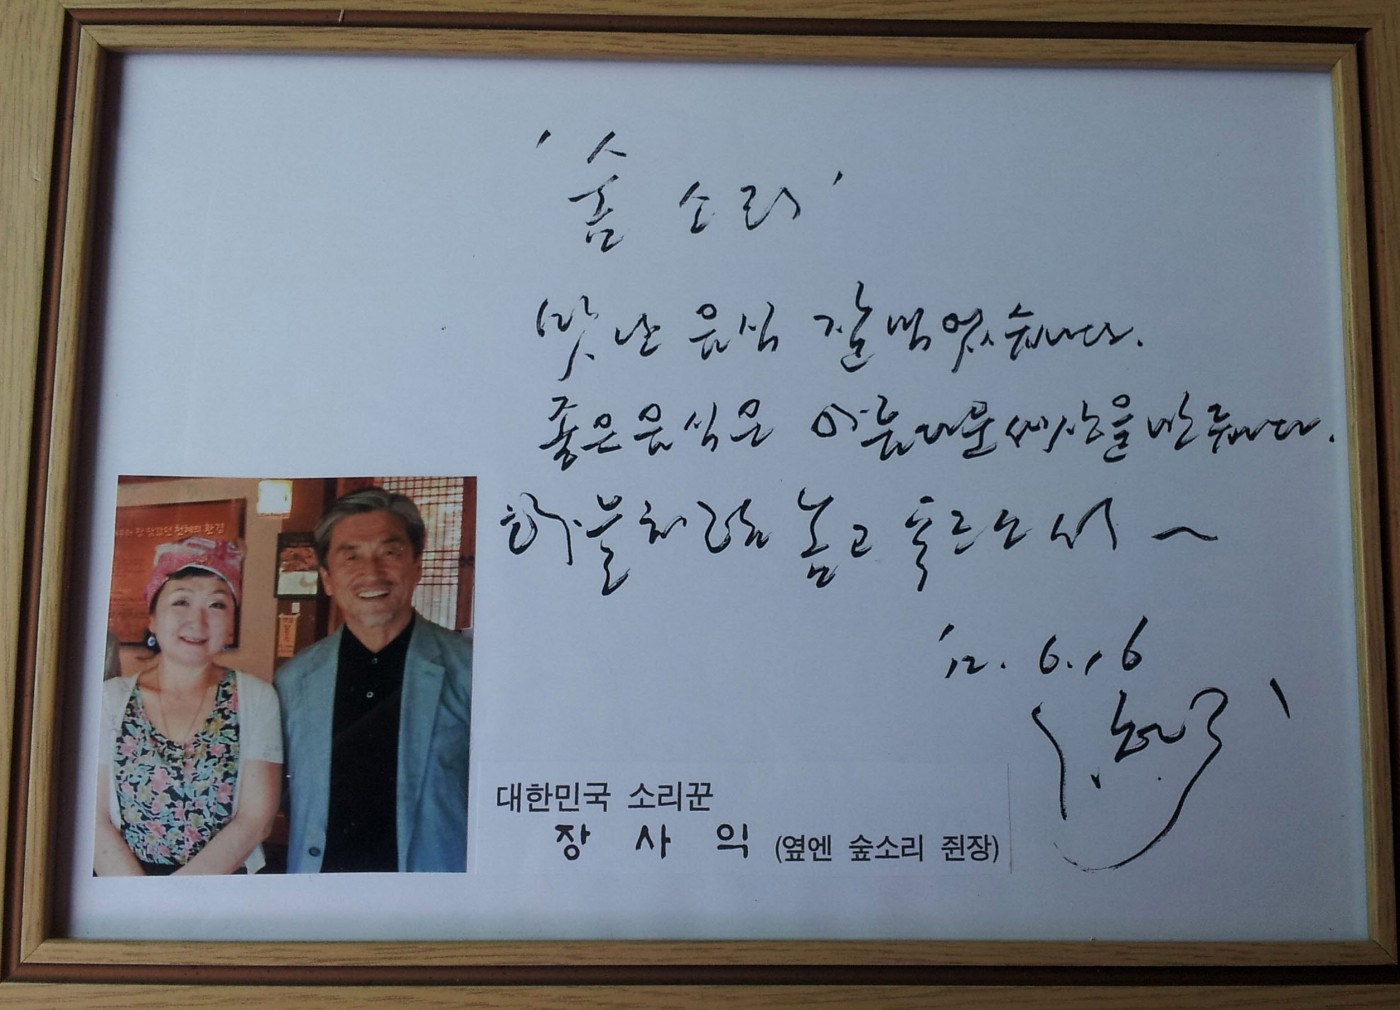 '숲 소리'
맛난 음식 잘 먹었습니다.
좋은 음식은 아름다운 세상을 만듭니다.
하늘처럼 높고 푸르소서~
'12. 6. 16
대한민국 소리꾼
장 사 익 (옆엔 숲소리 쥔장)